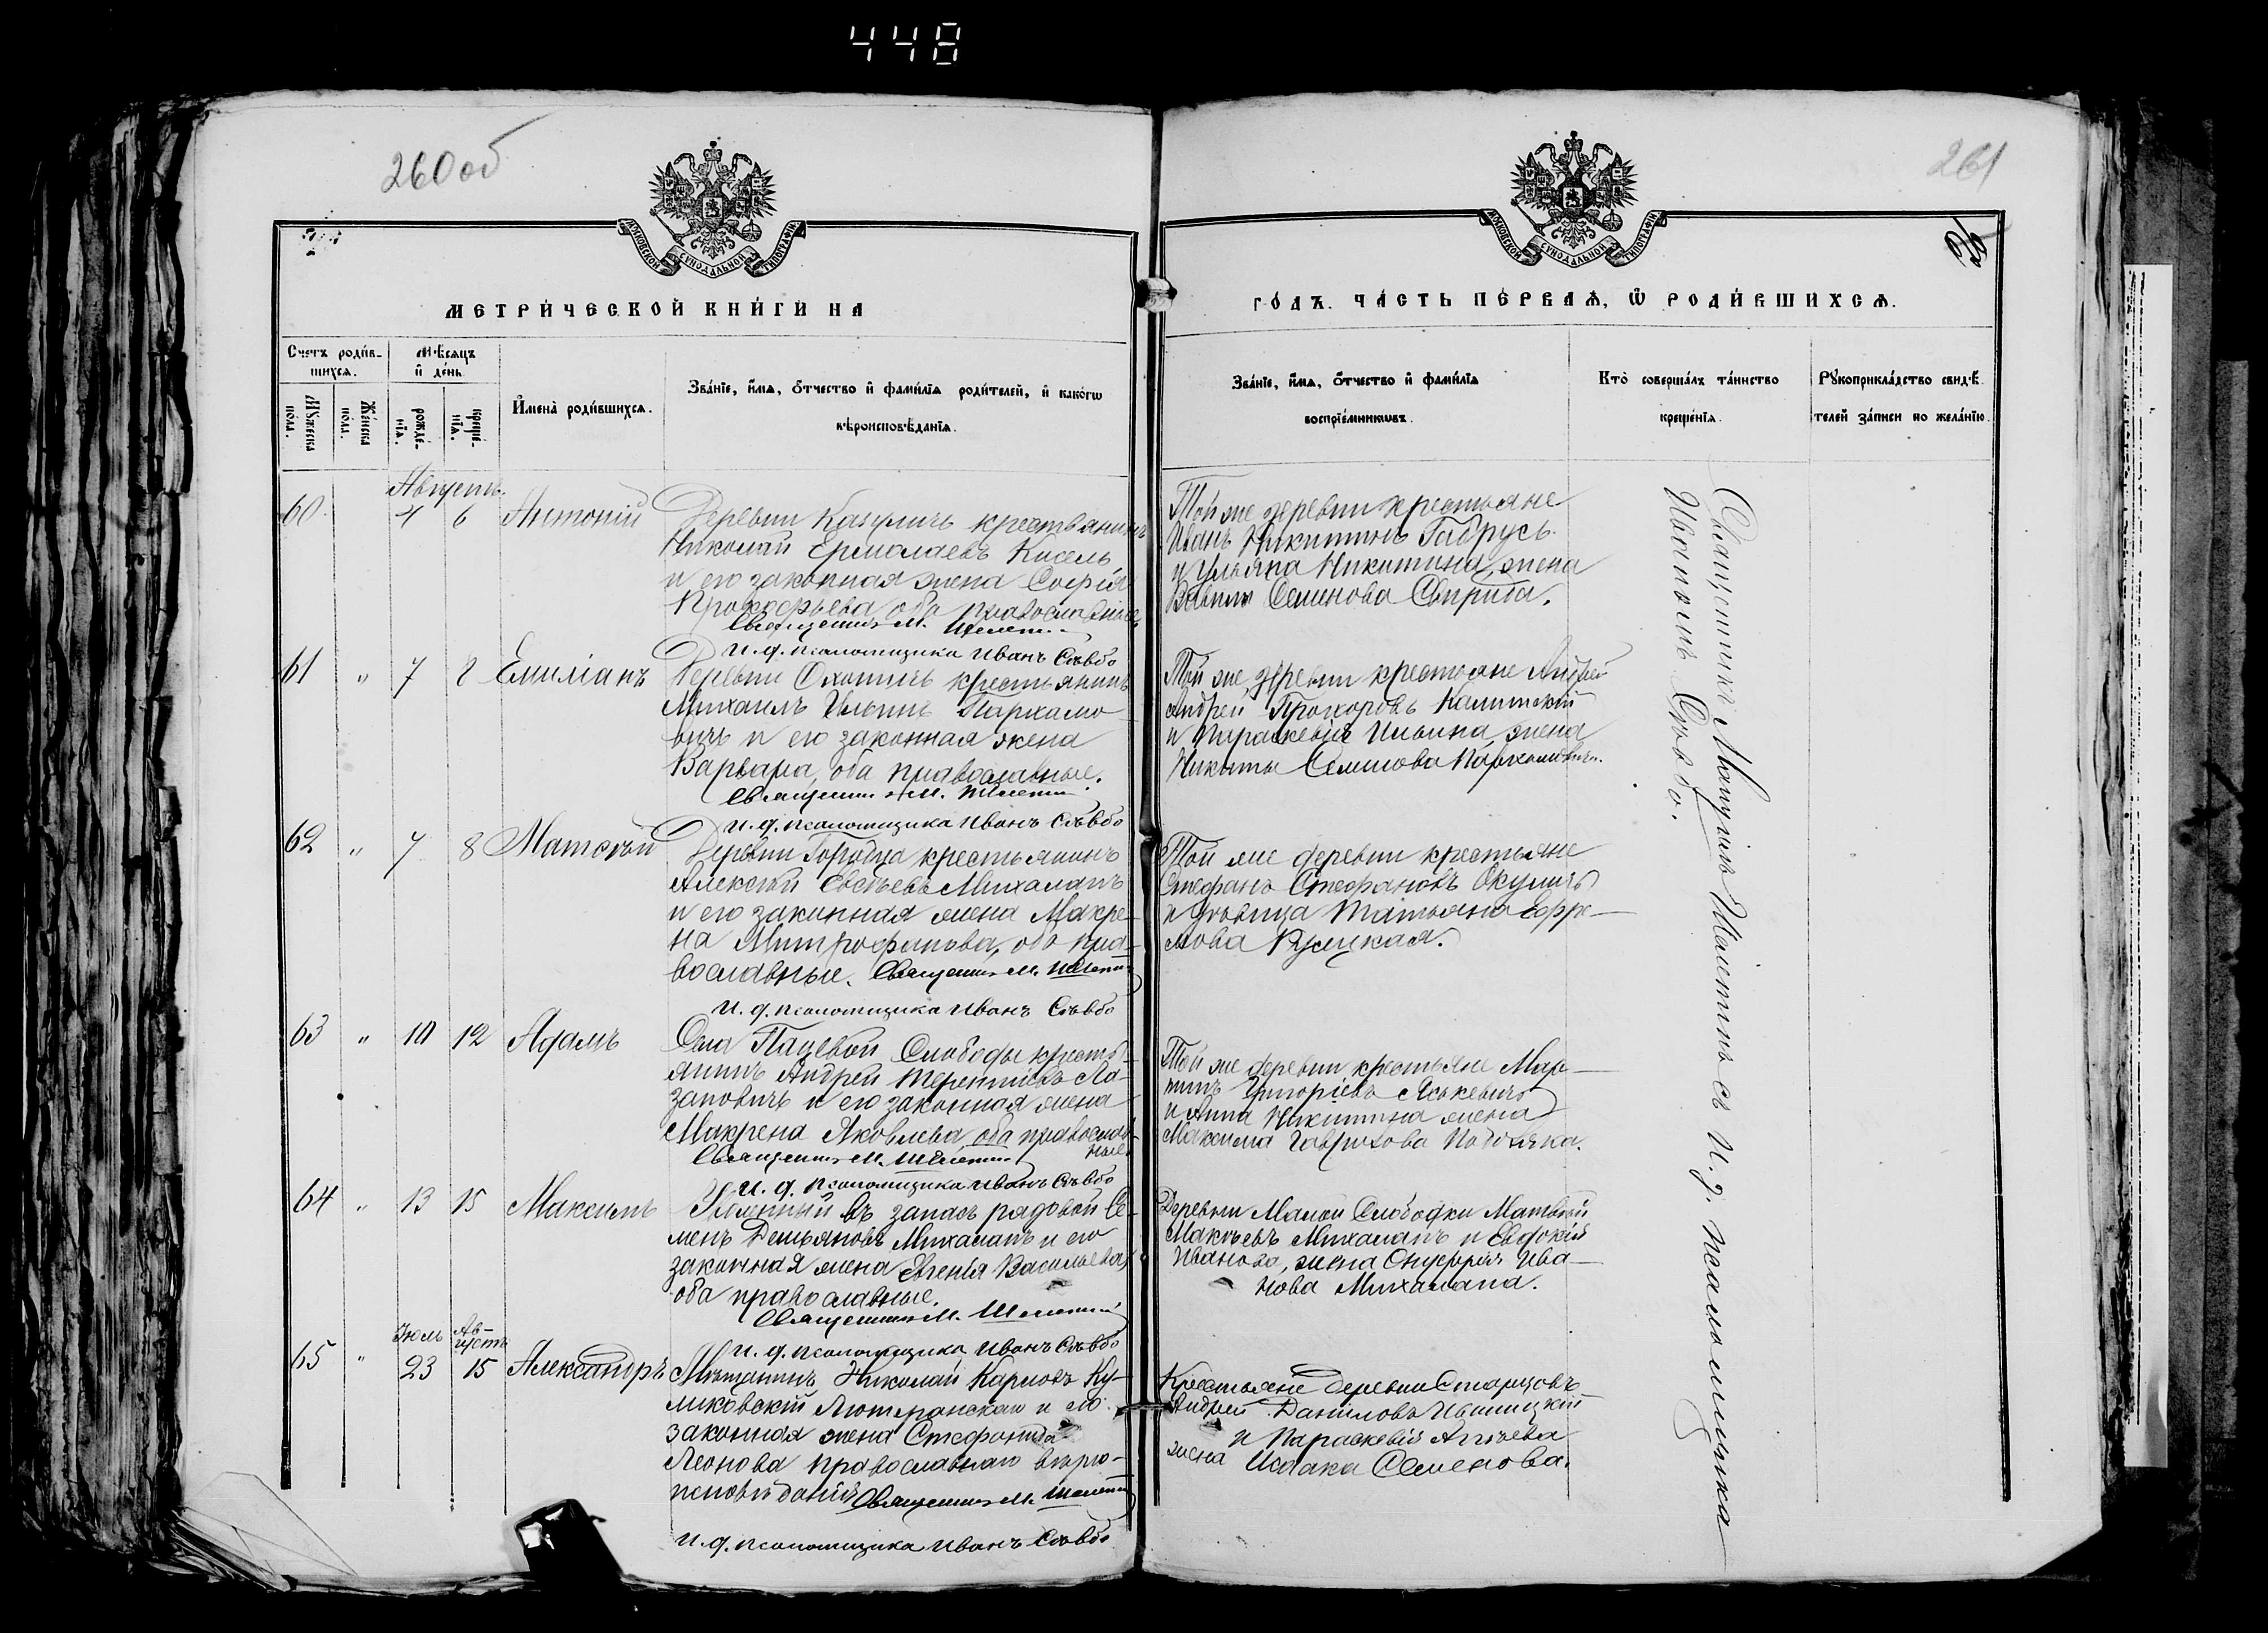 448
260 об
261
МОСКОВСКОЙ СѴНОДАЛЬНОЙ ТИПОГРАФІИ
МОСКОВСКОЙ СѴНОДАЛЬНОЙ ТИПОГРАФІИ
МЕТРИ́ЧЕСКОЙ КНИ́ГИ НА
ГО́ДЪ. ЧА́СТЬ ПЕ́РВАѦ, Ѿ РОДИ́ВШИХСѦ.
Счетъ роди́в-
шихсѧ.
Мꙋжеска
пола.
Же́нска
пола.
Мѣсѧцъ
и҆ де́нь.
рожде́-
нїѧ.
креще́-
нїѧ.
И҆мена̀ роди́вшихсѧ.
Зва́нїе, и҆́мѧ, ѻ҆́тчество и҆ фами́лїѧ роди́телей, и҆ како́гѡ
вѣроисповѣ́данїѧ.
Зва́нїе, и҆́мѧ, ѻ҆́тчество и҆ фами́лїѧ
воспрїе́мникѡвъ.
Кто̀ соверша́лъ та́инство
креще́нїѧ.
Рꙋкоприкла́дство свидѣ́-
телей за́писи по жела́нїю.
Августъ.
60. 4 6 Антоній
Деревни Казуличъ крестьянинъ
Николай Ермолаевъ Кисель
и его законная жена Софія
Прокофьева оба православные.
Священникъ М.
И. д. псаломщика Иванъ
Той же деревни крестьяне
Иванъ Никитинъ Габрусь
и Ульяна Никитина, жена
Вавилы Семенова Свирида.
61 " 7 8 Емиліанъ
Деревни Охотичъ крестьянинъ
Михаилъ Ильинъ Пархамо-
вичъ и его законная жена
Варвара, оба православные.
Священникъ М.
И. д. псаломщика Иванъ
Той же деревни крестьяне Андрей
Андрей Прохоровъ
и Параскевія Ильина, жена
Никиты Семенова Пархамовича.
62 " 7 8 Матѳей
Деревни Городца крестьянинъ
Алексѣй Михалапъ
и его законная жена Макре-
на Митрофанова, оба пра-
вославные. Священникъ М.
И. д. псаломщика Иванъ
Той же деревни крестьяне
Стефанъ Стефановъ Окуличъ
и Татьяна Ефре-
мова
63 " 10 12 Адамъ
Села Пацевой Слободы кресть-
янинъ Андрей Терентіевъ Ла-
зановичъ и его законная жена
Макрена Яковлева, оба православ-
ные.
Священникъ М.
И. д. псаломщика Иванъ
Той же деревни крестьяне Мар-
тинъ Григоріевъ Яськевичъ
и Анна Никитина жена
Максима Гаврилова
64 " 13 15 Максимъ
Уволенный въ запасъ рядовой Се-
менъ Демьяновъ Михалапъ и его
законная жена Евгенія Васильева,
оба православные.
Священникъ М.
И. д. псаломщика Иванъ
Деревни Малой Слободки Матвей
Михалапъ и Евдокія
Иванова, жена Онуфрія Ива-
нова Михалапа.
Іюль Ав-
густъ
65 " 23 15 Александръ
Мѣщанинъ Николай Карловъ Ку-
ликовскій Лютеранскаго и его
законная жена Стефанида
Леонова православнаго вѣро-
исповѣданій. Священникъ М.
И. д. псаломщика Иванъ
Крестьяне деревни Старцовъ
Андрей Даниловъ
и Параскевія
жена Исаака Семенова.
Священникъ съ И. д. псаломщика
Иваномъ